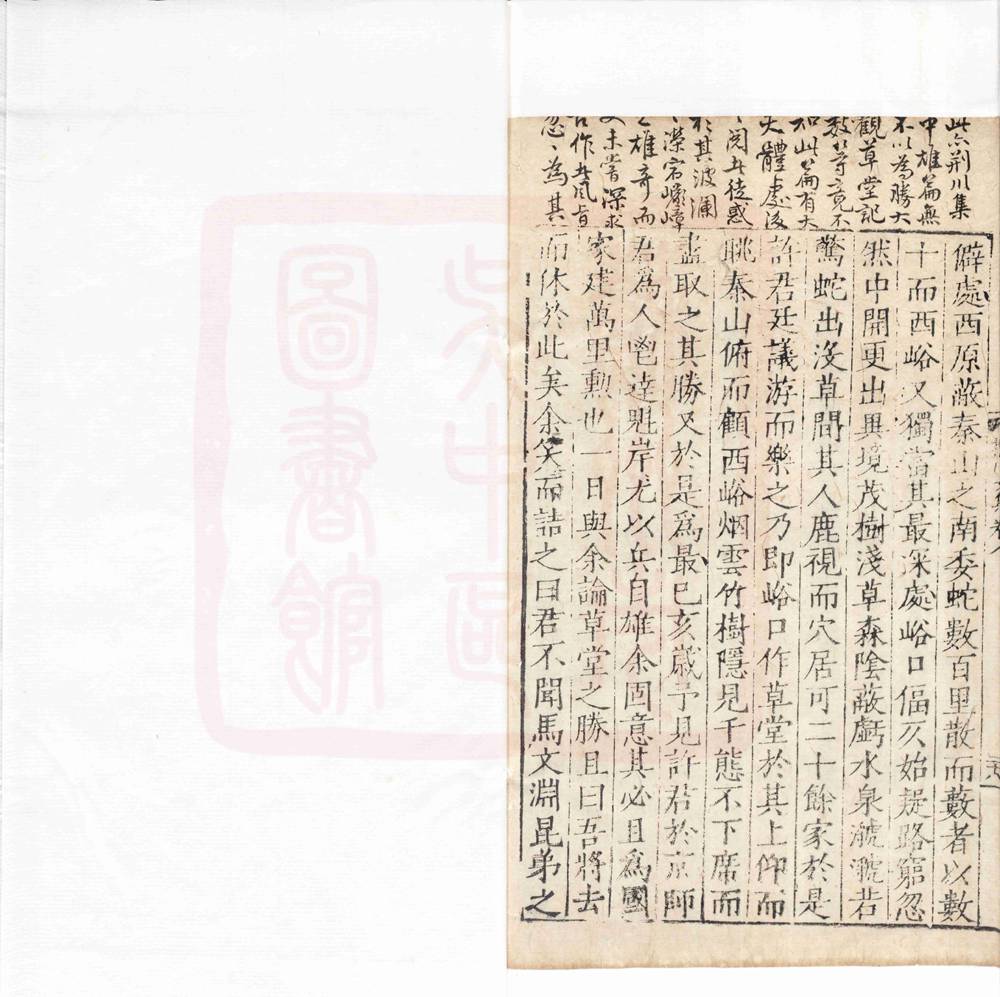 此亦荆川集
中雄篇無
不以為勝大
觀草堂記
數等竟不
知此篇有大
大體處後
閱此徒惑
於其波瀾
濚宕嶸嶂
之雄奇而
又未嘗深求
古作者風旨
忽忽為其
僻處西原蔽泰山之南委蛇數百里散而藪者以數
十而西峪又獨當其最深處峪口偪仄始疑路窮忽
然中開更出異境茂樹淺草森陰蔽虧水泉㶁㶁若
驚蛇出沒草間其人鹿視而穴居可二十餘家於是
許君廷議游而樂之乃即峪口作草堂於其上仰而
眺泰山俯而顧西峪烟雲竹樹隱見千態不下席而
盡取之其勝又於是爲最已亥歲予見許君於京師
君爲人鬯達魁岸尤以兵自雄余固意其必且爲國
家建萬里勲也一日與余論草堂之勝且曰吾將去
而休於此矣余笑而詰之曰君不聞馬文淵昆弟之
吳中區
圖書館